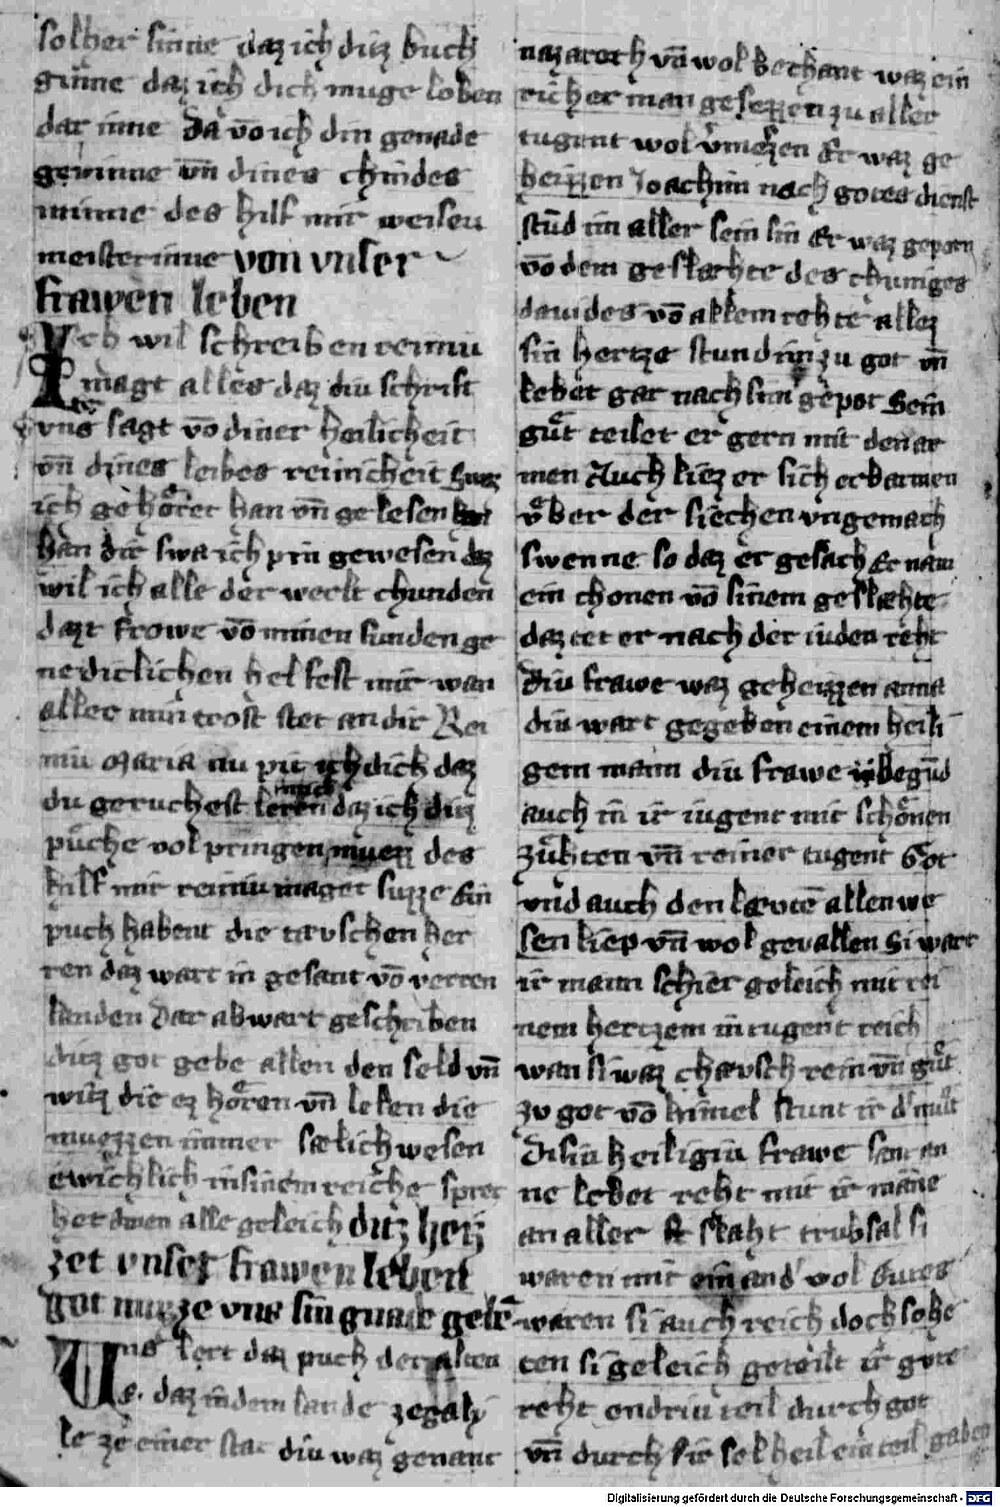 solher sinne daz ich ditz buch
ginne daz ich dich muge loben
dar inne Da vō ich din genade
gewinne vn̄ dines chindes
minne des hilf mir weisew
meisterinne von vnser
frawen leben
Ich wil schreiben reiniu
magt alles daz diu schrift
vns sagt vō diner heilicheit
vn̄ dines leibes reinicheit Swaz
ich gehoͤret han vn̄ gelesen
han dir swa ich pin gewesen daz
wil ich alle der werlt chunden
dazt frowe vō minen sunden ge
nediclichen helfest mir wan
aller min trost stet an dir Rei
niu Maria nu pit ich dich daz
du geruchest mich leren daz ich ditz
puͤche volpringen muezz des
hilf mir reiniu maget suzze Ein
puch habent die tævschen her
ren daz wart in gesant vō verren
landen Dar ab wart geschriben
ditz got gebe allen den seld vn̄
witz die ez hoͤren vn̄ lesen die
muezzen immer sælich wesen
ewichlich in sinem reiche sprec
het amen alle geleich ditz heiz
zet vnser frawen leben
got muzze vns sin gnade gebē
Uns lert daz puch der alten
e. daz in dem lande ze galy
le ze einer stat diu waz genant
nazareth vn̄ wol bechant waz ein
richer man gesezzen zu aller
tugent wol v̄mezzen Er waz ge
heizzen Joachim nach gotes dienst
stūd im aller sein sin Er waz geporn
vō dem geslæhte des chuniges
dauides vō allem rehte allez
sin hertze stund im zu got vn̄
lebet gar nach sim gepot Sein
guͤt teilet er gern mit den ar
men Auch liez er sich erbarmen
vͤber der siechen vngemach
swenne so daz er gesach Er nam
ein chonen vō sinem geslæhte
daz tet er nach der iuden reht
Diu frawe waz geheizzen anna
diu wart gegeben einem heili
gem mann diu frawe begūd
auch in ir iugent mit schoͤnen
zuͤhten vn̄ reiner tugent Got
vnd auch den lævtē allen we
sen liep vn̄ wol geuallen Si wart
ir mann schier geleich mit rei
nem hertzem in tugent reich
wan si waz chævsch rein vn̄ guͤt
zv got vō himel stunt ir d' muͤt
Disiu heiligiu frawe sant an
ne lebet reht mit ir manne
an aller slaht trubsal si
waren mit ein and' vol Gutes
waren si auch reich doch so he
ten si geleich geteilt ir gvt
reht endriu teil durch got
vn̄ durch ir sel heil ein teil gaben
Digitalisierung gefördert durch die Deutsche Forschungsgemeinschaft - DFG